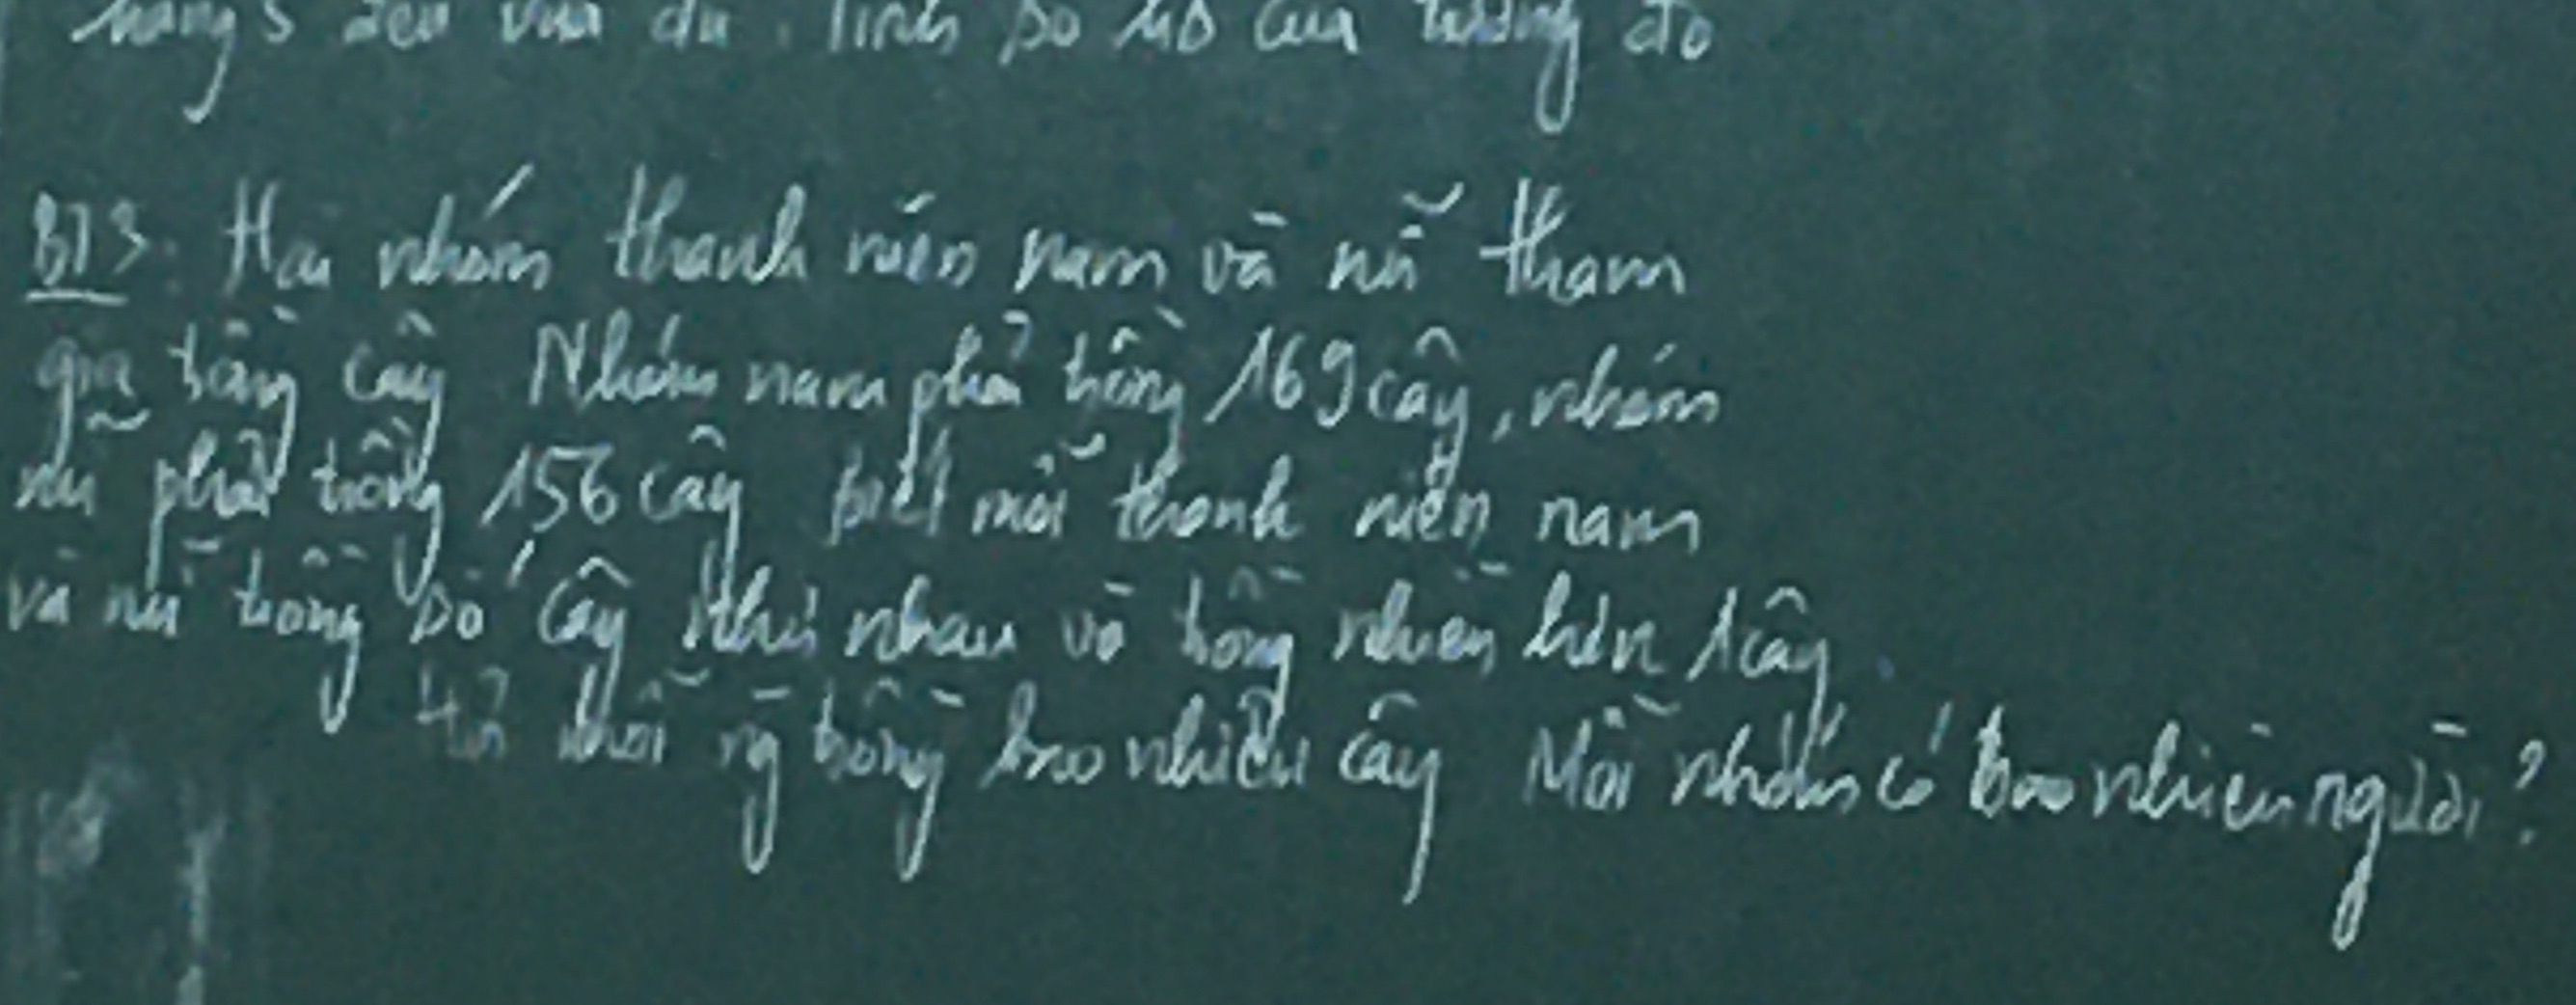 hàng 5 đều vừa đủ. Tính số HS của trường đó
BT3: Hai nhóm thanh niên nam và nữ tham
gia trồng cây Nhóm nam phải trồng 169 cây, nhóm
nữ phải trồng 156 cây biết mỗi thanh niên nam
và nữ trồng số cây như nhau và trồng nhiều hơn 1 cây.
Hỏi mỗi ng trồng bao nhiêu cây Mỗi nhóm có bao nhiêu người?